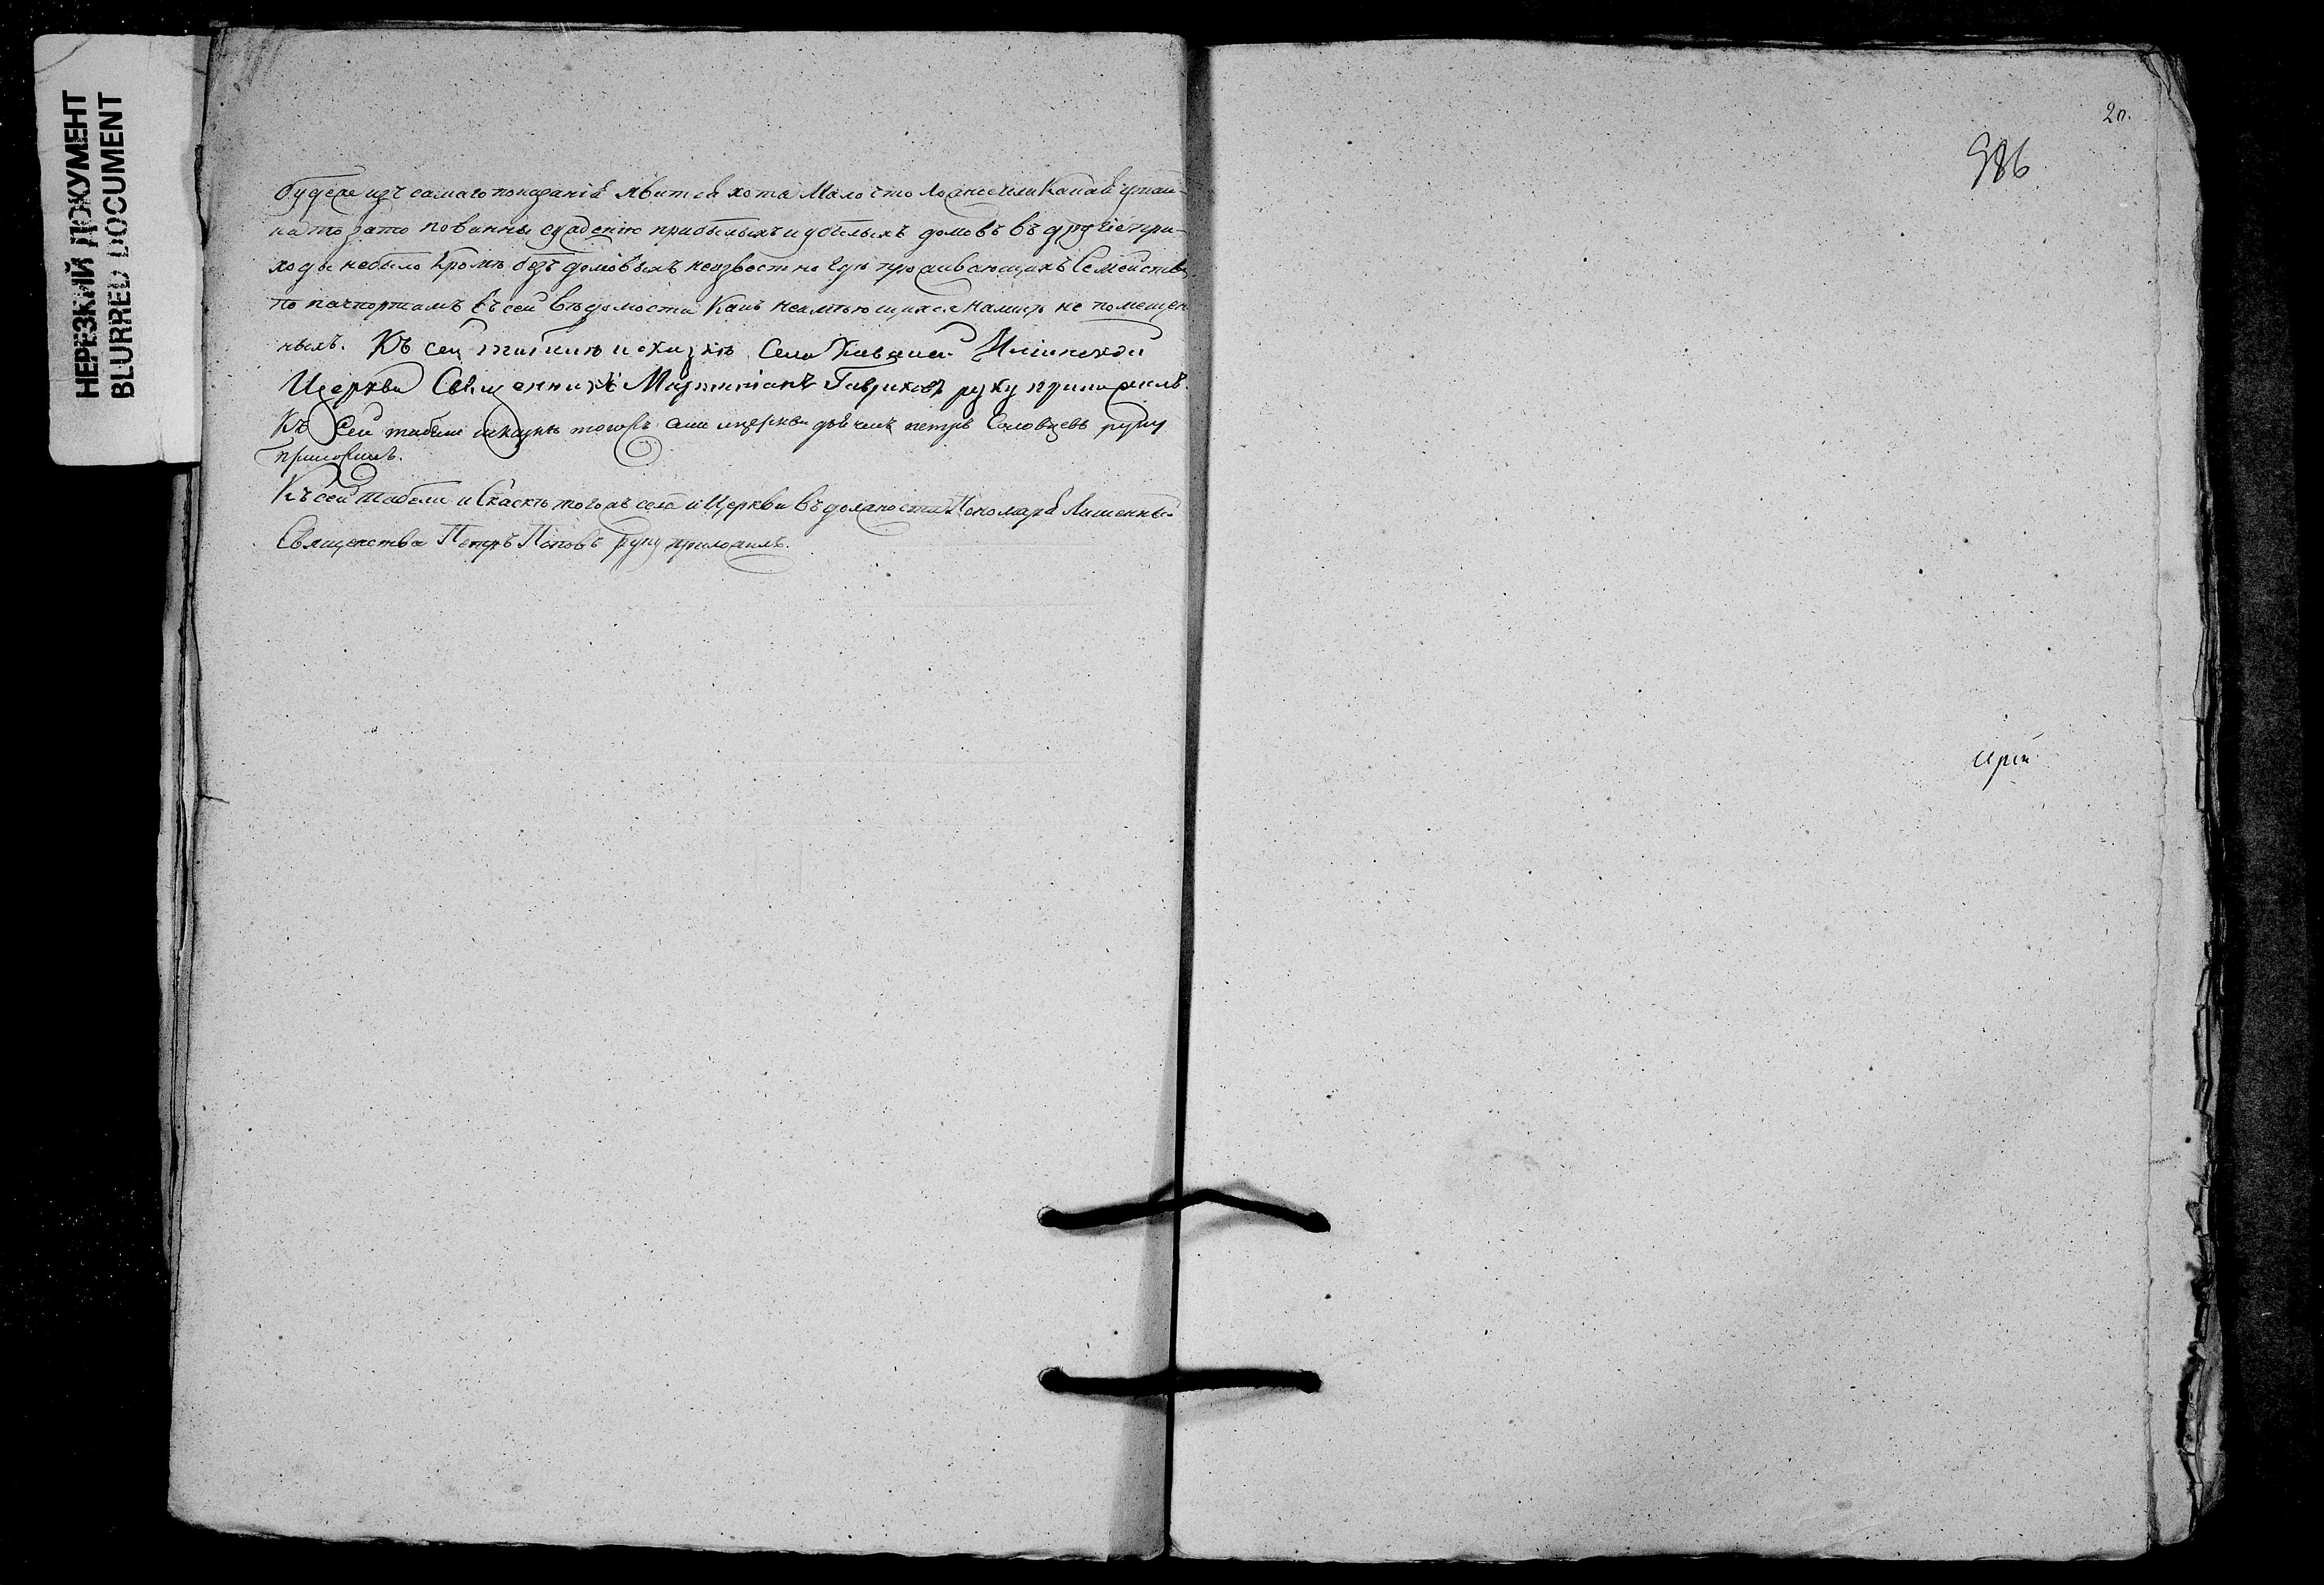 НЕРЕЗКИЙ ДОКУМЕНТ
BLURRED DOCUMENT
будеже изъ самаго показанiя явится хотя мало что ложно или какая утай-
ка то зато повинны суждению прибылыхъ и убылыхъ домовъ въ другiе при-
ходы небыло кроме безъ домовыхъ неизвестно где проживающихъ Семействъ
по пачпортамъ въ сей ведомости какъ неимеющихся налицо не помещен
ныхъ. Къ сей табели и скаске Села Илiинской
Церкви Священникъ Мартинiанъ Гавриковъ руку приложилъ.
Къ сей табели искаске тогожъ села ицеркви дьячекъ петръ Соловцевъ руку
приложилъ.
Къ сей Табели и Скаске тогожъ села и Церкви въ должности Пономаря Лишенный
Священства Петръ Поповъ руку приложилъ.
20.
986
ирiи